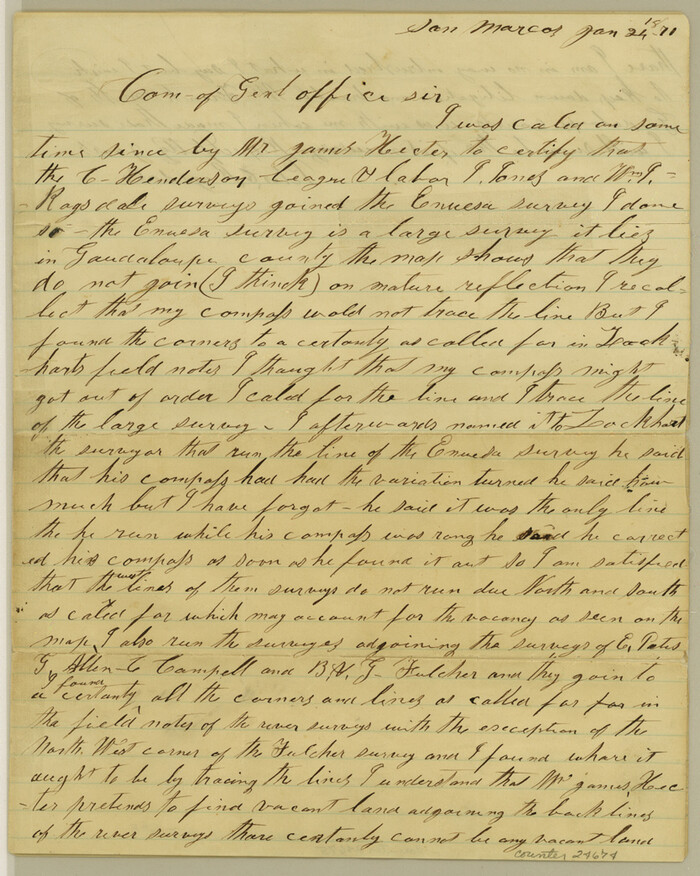 San Marcos Jan 24 18/71
Com- of Genl office sir
I was caled on some
time since by Mr james Hecter to certify that
the C- Henderson League & labor P. Jones and Wm P.
Ragsdale surveys goined the Enuesa survey I done
so - the Enuesa survey is a large survey it lies
in Gaudaloupe county the map shows that they
do not goin (I thinck) on mature reflection I recol-
lect that my compass wold not trace the line But I
found the corners to a certanty as called for in Lock-
harts field notes I thought that my compass might
got out of order I caled for the line and I trace the line
of the large survey - I afterwards named it to Lockhart
the surveyor that run the line of the Enuesa survey he said
that his compass had had the variation turned he said how
much but I have forgot - he said it was the only line
the he run while his compass was rong he said he correct
ed his compass as soon as he found it out so I am satisfied
that the west lines of them surveys do not run due North and south
as caled for which may account for the vacancy as seen on the
map, I also run the surveys adgoining the surveys of E. Pates
G Allen - C Campell and B. V. G- Fulcher and they goin to
a certanty found all the corners and lines as called for for in
the field notes of the river surveys with the exception of the
North West corner of the Fulcher survey and I found whare it
aught to be by tracing the lines I understand that Mr james Hec
-ter pretends to find vacant land adgoining the back lines
of the river surveys thare certanly cannot be any vacant land
counter 24674